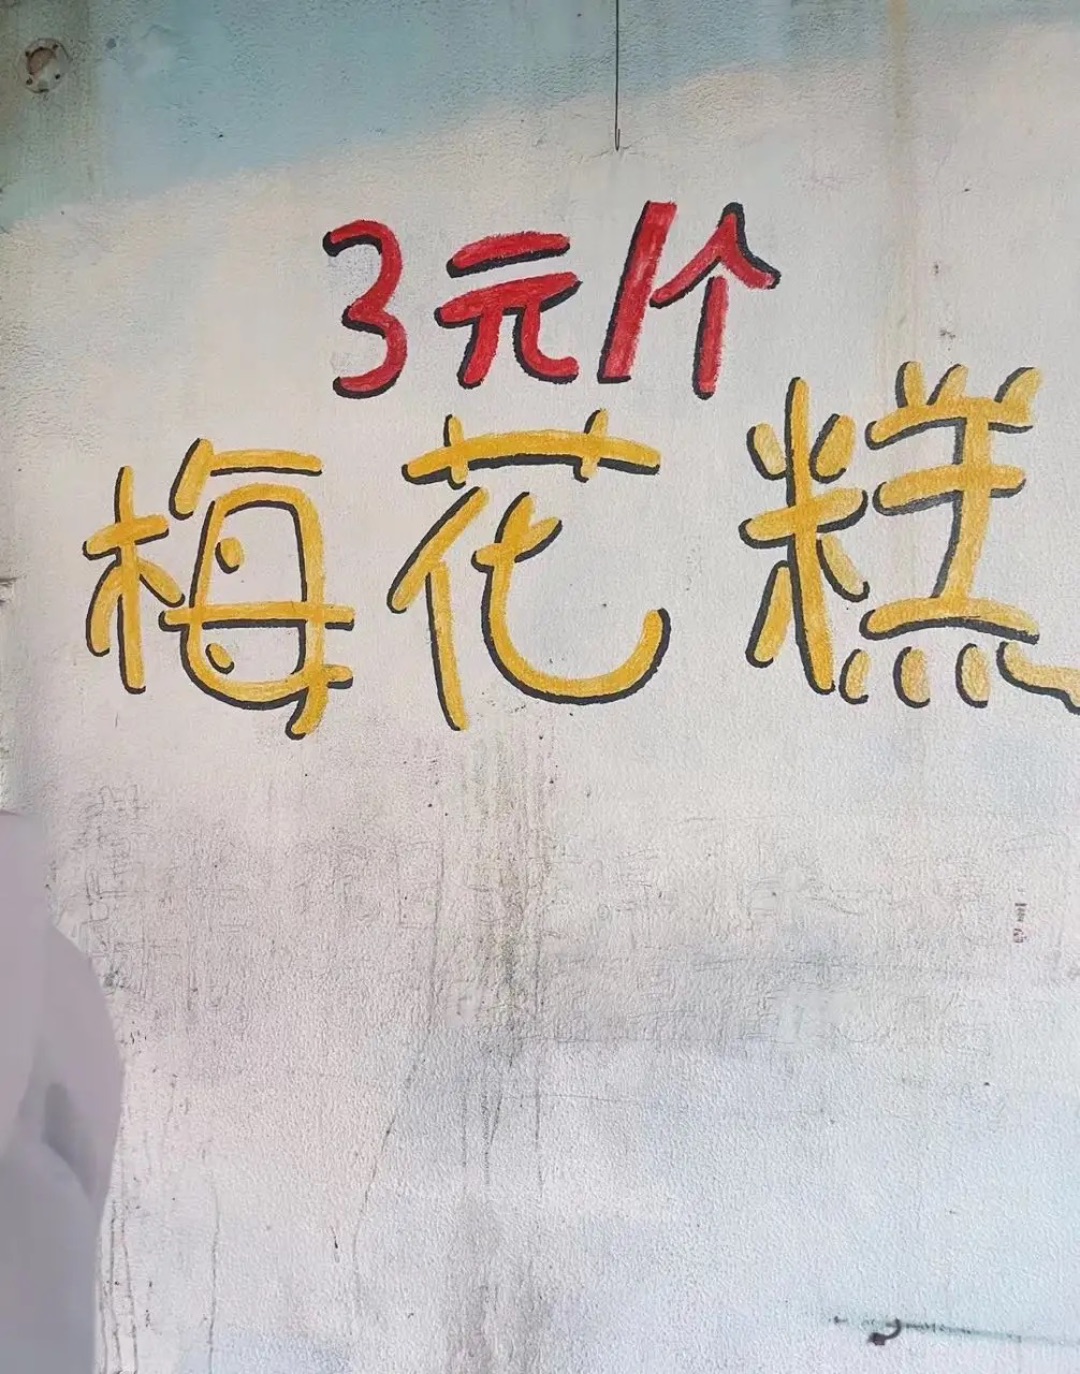 3元/个
梅花糕